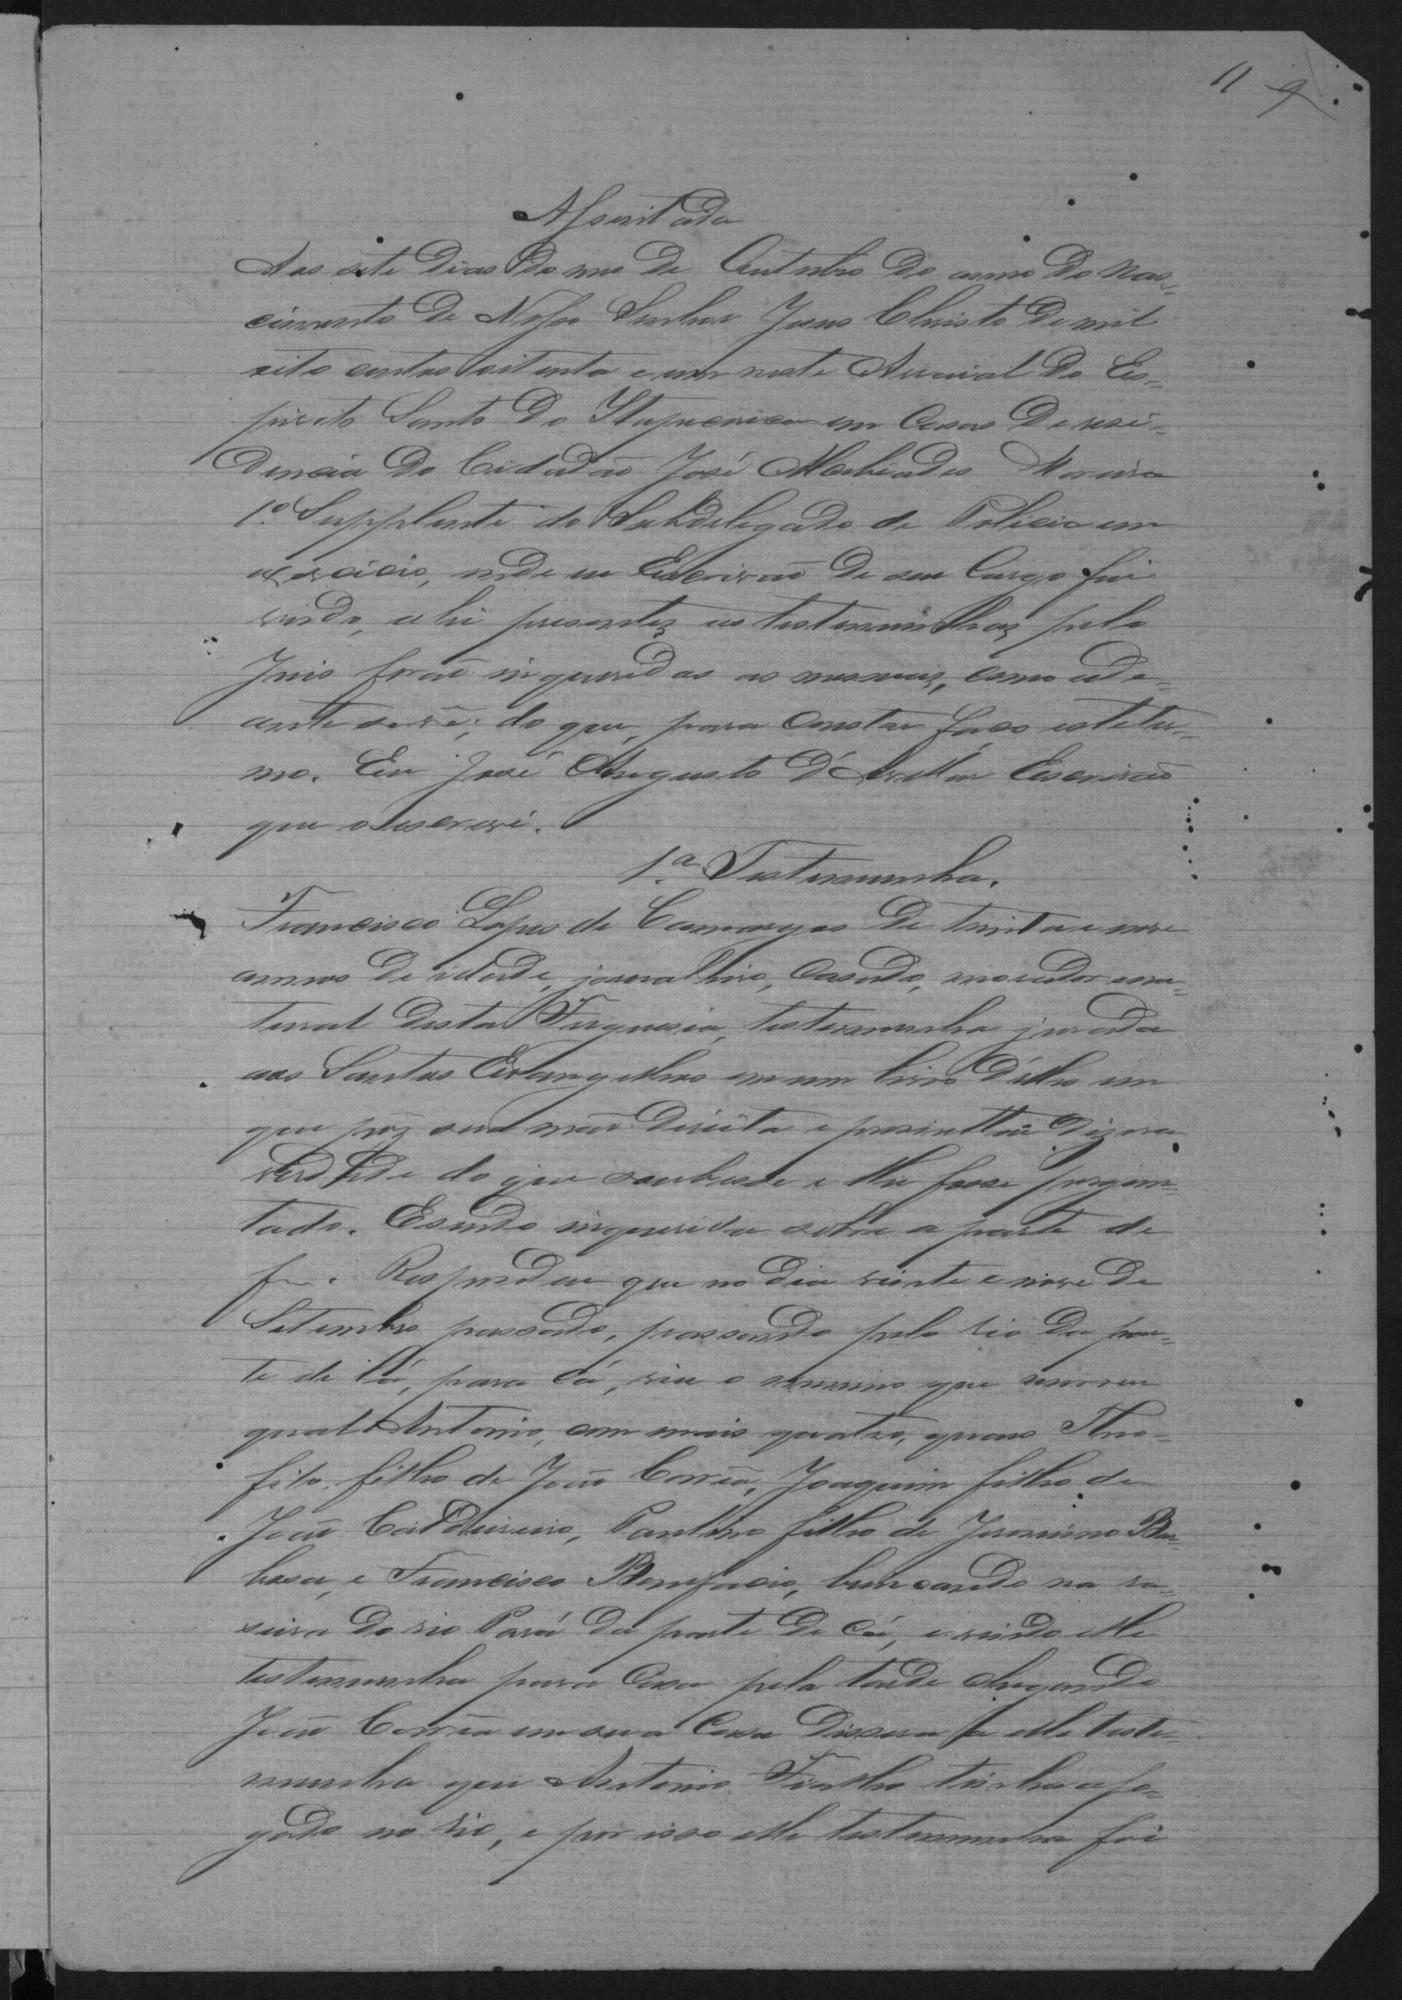 11 9
Assentada
Aos sete dias do mes de Outubro do anno do Nas-
cimento de Nosso Senhor Jesus Christo de mil
oito centos oitenta e um neste Arraial do Es-
pirito Santo do Itapecirica em Casas de resi-
dencia do Cidadão José Alcebiades Moreira
1º Supplente do Subdelegado de Policia em
exercicio, onde eu Escrivaõ de seu Cargo fui
vindo, ahi presentes as testemunhas pelo
Juis foraõ inqueridas as mesmas, como ade-
ante se vê; do que, para constar faço este ter-
mo. Eu José Augusto d'Avellar Escrivaõ
que o escrevi.
1ª Testemunha.
Francisco Lopes de Camargos de trinta e nove
annos de idade, jornaleiro, Casado, morador e na-
tural desta Freguesia, testemunha jurada
aos Santos Evangelhos em um livro d'elles em
que pôz sua maõ direita e prometteu dizer a
verdade do que soubesse e lhe fosse pergun-
tado. E sendo inquerida sobre a parte de
f. Respondeu que no dia vinte e nove de
Setembro passado, passando pelo rio da par-
te de lá, para cá, viu o menino que morreu
qual Antonio, com mais quatro, quaes Theo-
filo, filho de João Corrêa, Joaquim filho de
João Caldeireiro, Paulino filho de Jeronimo Bar-
bosa, e Francisco Bonifacio, brincando na
do rio Pará da parte de cá, e vindo elle
testemunha para Casa pela tarde chegando
João Corrêa em sua Casa dissera a elle teste-
munha que Antonio Fialho tinha afo-
gado no rio, e por isso elle testemunha foi